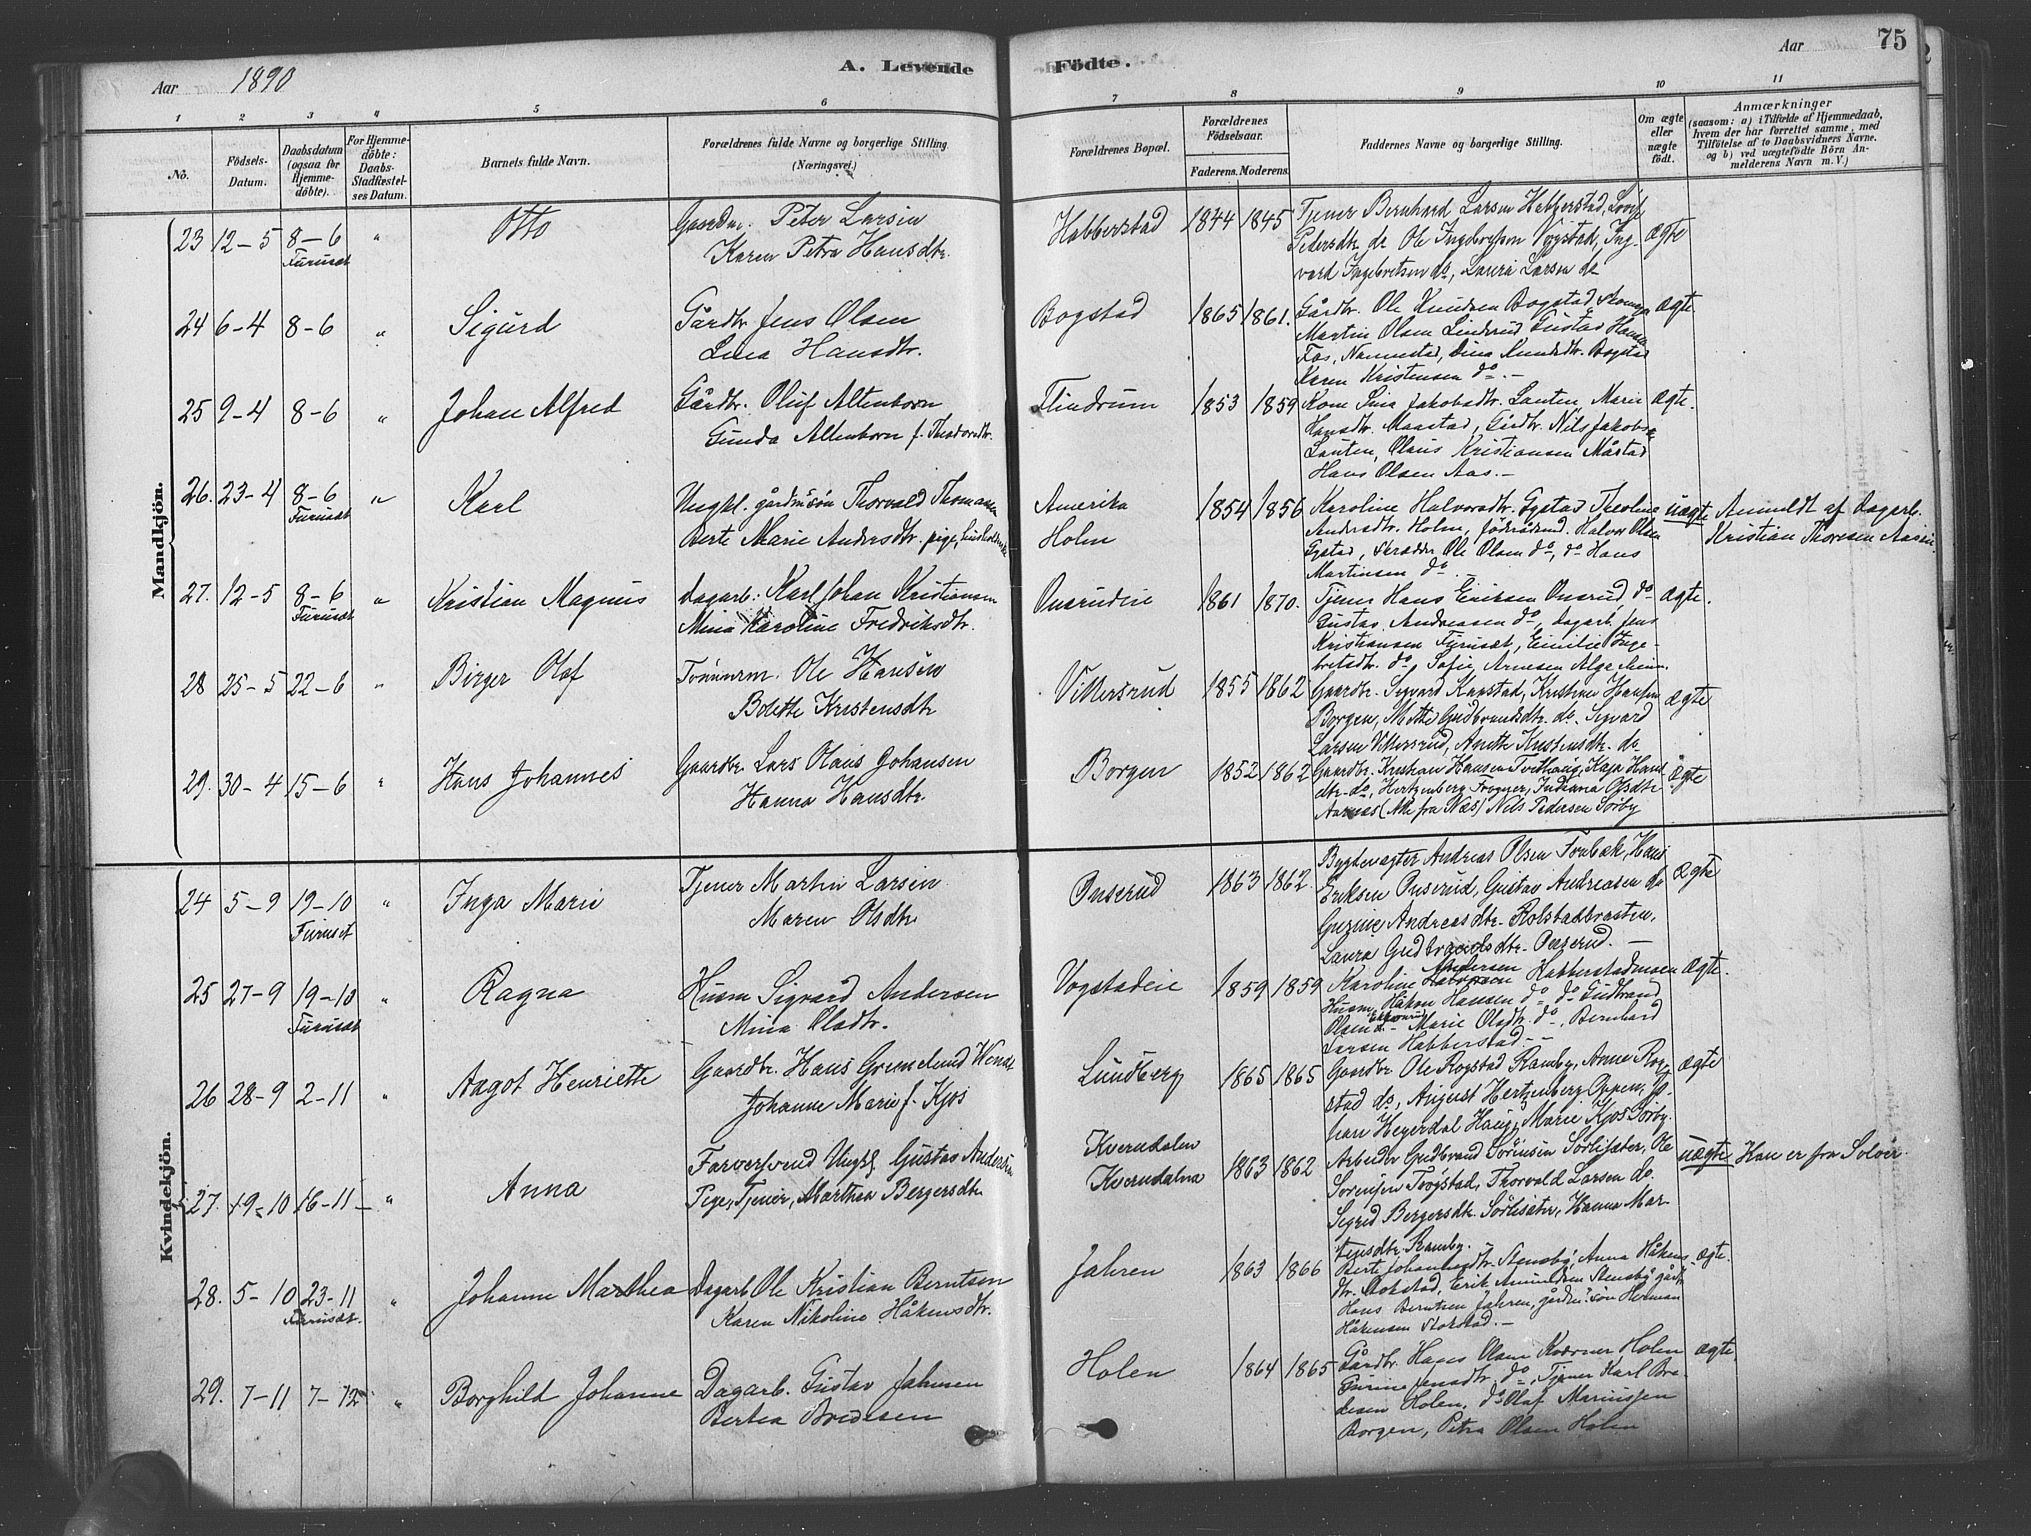 Aar 1890
A. Levende
Fødte.
Aar
75
1 2 3 4 5 6 7 8 9 10 11
No.
Fødsels-Datum.
Daabsdatum (ogsaa for Hjemme-døbte).
For Hjemme-døbte: Daabs-Stadfæstel-ses Datum.
Barnets fulde Navn.
Forældrenes fulde Navne og borgerlige Stilling. (Næringsvei.)
Forældrenes Bopæl.
Forældrenes Fødselsaar.
Faderens. Moderens.
Faddernes Navne og borgerlige Stilling.
Om ægte eller uægte født.
Anmærkninger
(saasom: a) i Tilfælde af Hjemmedaab, hvem der har forrettet samme, med Tilføielse af to Daabsvidners Navne. og b) ved uægtefødte Børn An-melderens Navn m. V.)
Mandkjøn.
23 12-5 8-6 Furuset " Otto
Gaardbr. Peter Larsen
Karen Petra Hansdtr.
Habberstad 1844 1845
Tjener Bernhard Larsen Habberstad,
Pedersdtr. do Ole Ingebretsen Vogstad, Ing-
vard Ingebretsen do, Laura Larsen do
ægte
24 6-4 8-6 " Sigurd
Gårdbr. Jens Olsen
Lina Hansdtr.
Bogstad 1865 1861.
Gårdbr. Ole Knudsen Bogstad,
Martin Olsen Linderud, Gustav Hansen
Fos, Nannestad, Dina Knudsdtr. Bogstad
Karen Kristensen do. -
ægte
25 9-4 8-6 " Johan Alfred
Gårdbr. Oluf Altenborn
Gunda Altenborn f. Theodorsdtr.
Flindrum 1853 1859
Kone Lina Jakobsdtr. Lauten, Marie
Hansdtr. Maastad, Gårdbr. Nils Jakobsen
Lauten, Olaus Kristiansen Måstad
Hans Olsen Aas. -
ægte.
26. 23-4 8-6 Furuset " Karl
Ungkl. gårdmsøn Thorvald Thomasen
Berte Marie Andersdtr. pige,
Amerika
Holm
1854 1856
Karoline Halvorsdtr. Gystad, Theoline
Andersdtr. Holm, Halvor Olsen
Gystad, Skrædder Ole Olsen do, do Hans
Martinsen do.
uægte
Anmeldt af dagarb.
Kristian Thoresen
27. 12-5 8-6 Furuset " Kristian Magnus
Dagarb. Karl Johan Kristiansen
Mina Karoline Fredriksdtr.
Onsrudeie 1861 1870.
Tjener Hans Eriksen Onsrud, do
Gustav Andreasen do, dagarb. Jens
Kristiansen Furuset, Emilie Inge-
bretsdtr. do, Sofie Arnesen
ægte.
28 25-5 22-6 " Birger Olaf
Tømmerm. Ole Hansen
Bolette Kristensdtr
Vittersrud 1855 1862
Gaardbr. Sigvard Kaastad, Kristine Hansen
Borgen, Mette Gudbrandsdtr. do. Sigvard
Larsen Vittersrud, Anette Kristensdtr. do
ægte
29. 30-4 15-6 " Hans Johannes
Gaardbr. Lars Olaus Johansen
Hanna Hansdtr.
Borgen 1852 1862
Gaardbr. Kristian Hansen Tveithaug, Kaja Hans
dtr. do, Hertzenberg Frogner, Indiana Olsdtr
Aarnæs (Alle fra Næs) Nils Pedersen Sørby
ægte
Kvindekjøn.
24 5-9 19-10 Furuset " Inga Marie
Tjener Martin Larsen
Maren Olsdtr
Onserud 1863 1862.
Bygdevægter Andreas Olsen Trubak, Hans
Eriksen Onserud, Gustav Andreasen do
Guzine Andreasdtr. Rolstadbraaten,
Laura Gudbrandsdtr. Onserud. -
ægte
25 27-9 19-10 Furuset " Ragna
Husm Sigvard Andersen
Mina Olsdtr.
Vogstadeie 1859 1859
Karoline Andersen Habberstadmoen
Husm. Håkon Hansen do do Gudbrand
Olsen Marie Olsdtr. do, Bernhard
Larsen Habberstad - -
ægte.
26 28-9 2-11 " Aagot Henriette
Gaardbr. Hans Gremelund Wende
Johanne Marie f. Kjos
Lundberg 1865 1865
Gaardbr Ole Rogstad Ramby, Anne Rog-
stad do, August Hertzenberg Oppen, Jo-
han Heyerdal Haug, Marie Kjos Sørby.
ægte
27. 19-10 16-11 " Anna
Farversvend Ungkl. Gustav Andersen
Pige, Tjener, Marthea Bergersdtr
Kverndalen
Kverndalen
1863 1862
Arbeider Gudbrand Sørensen Sørlisæter, Ole
Sørensen Trøgstad, Thorvald Larsen do.
Sigrid Bergersdtr. Sørlisæter, Hanna Mar-
tensdtr. Ramby.
uægte
Han er fra Soløer.
28. 5-10 23-11 Furuset. " Johanne Marthea
Dagarb. Ole Kristian Berntsen
Karen Nikoline Håkensdtr.
Jahren 1863 1866
Berte Johannesdtr. Stensby, Anna Håkens
dtr. Stokstad, Erik Amundsen Stensby, gårdbr
Hans Berntsen Jahren, gårdm. søn Herman
Håkensen Stokstad. -
ægte.
29. 7-11 7-12 " Borghild Johanne
Dagarb. Gustav Jahnsen
Bertea Bredesen
Holen 1864 1865
Gårdbr. Hans Olsen Kværner Holen
Gurine Jensdtr. do, Tjener Karl Bre-
desen Holen, do Olaf Mariussen
Borgen, Petra Olsen Holen
ægte.